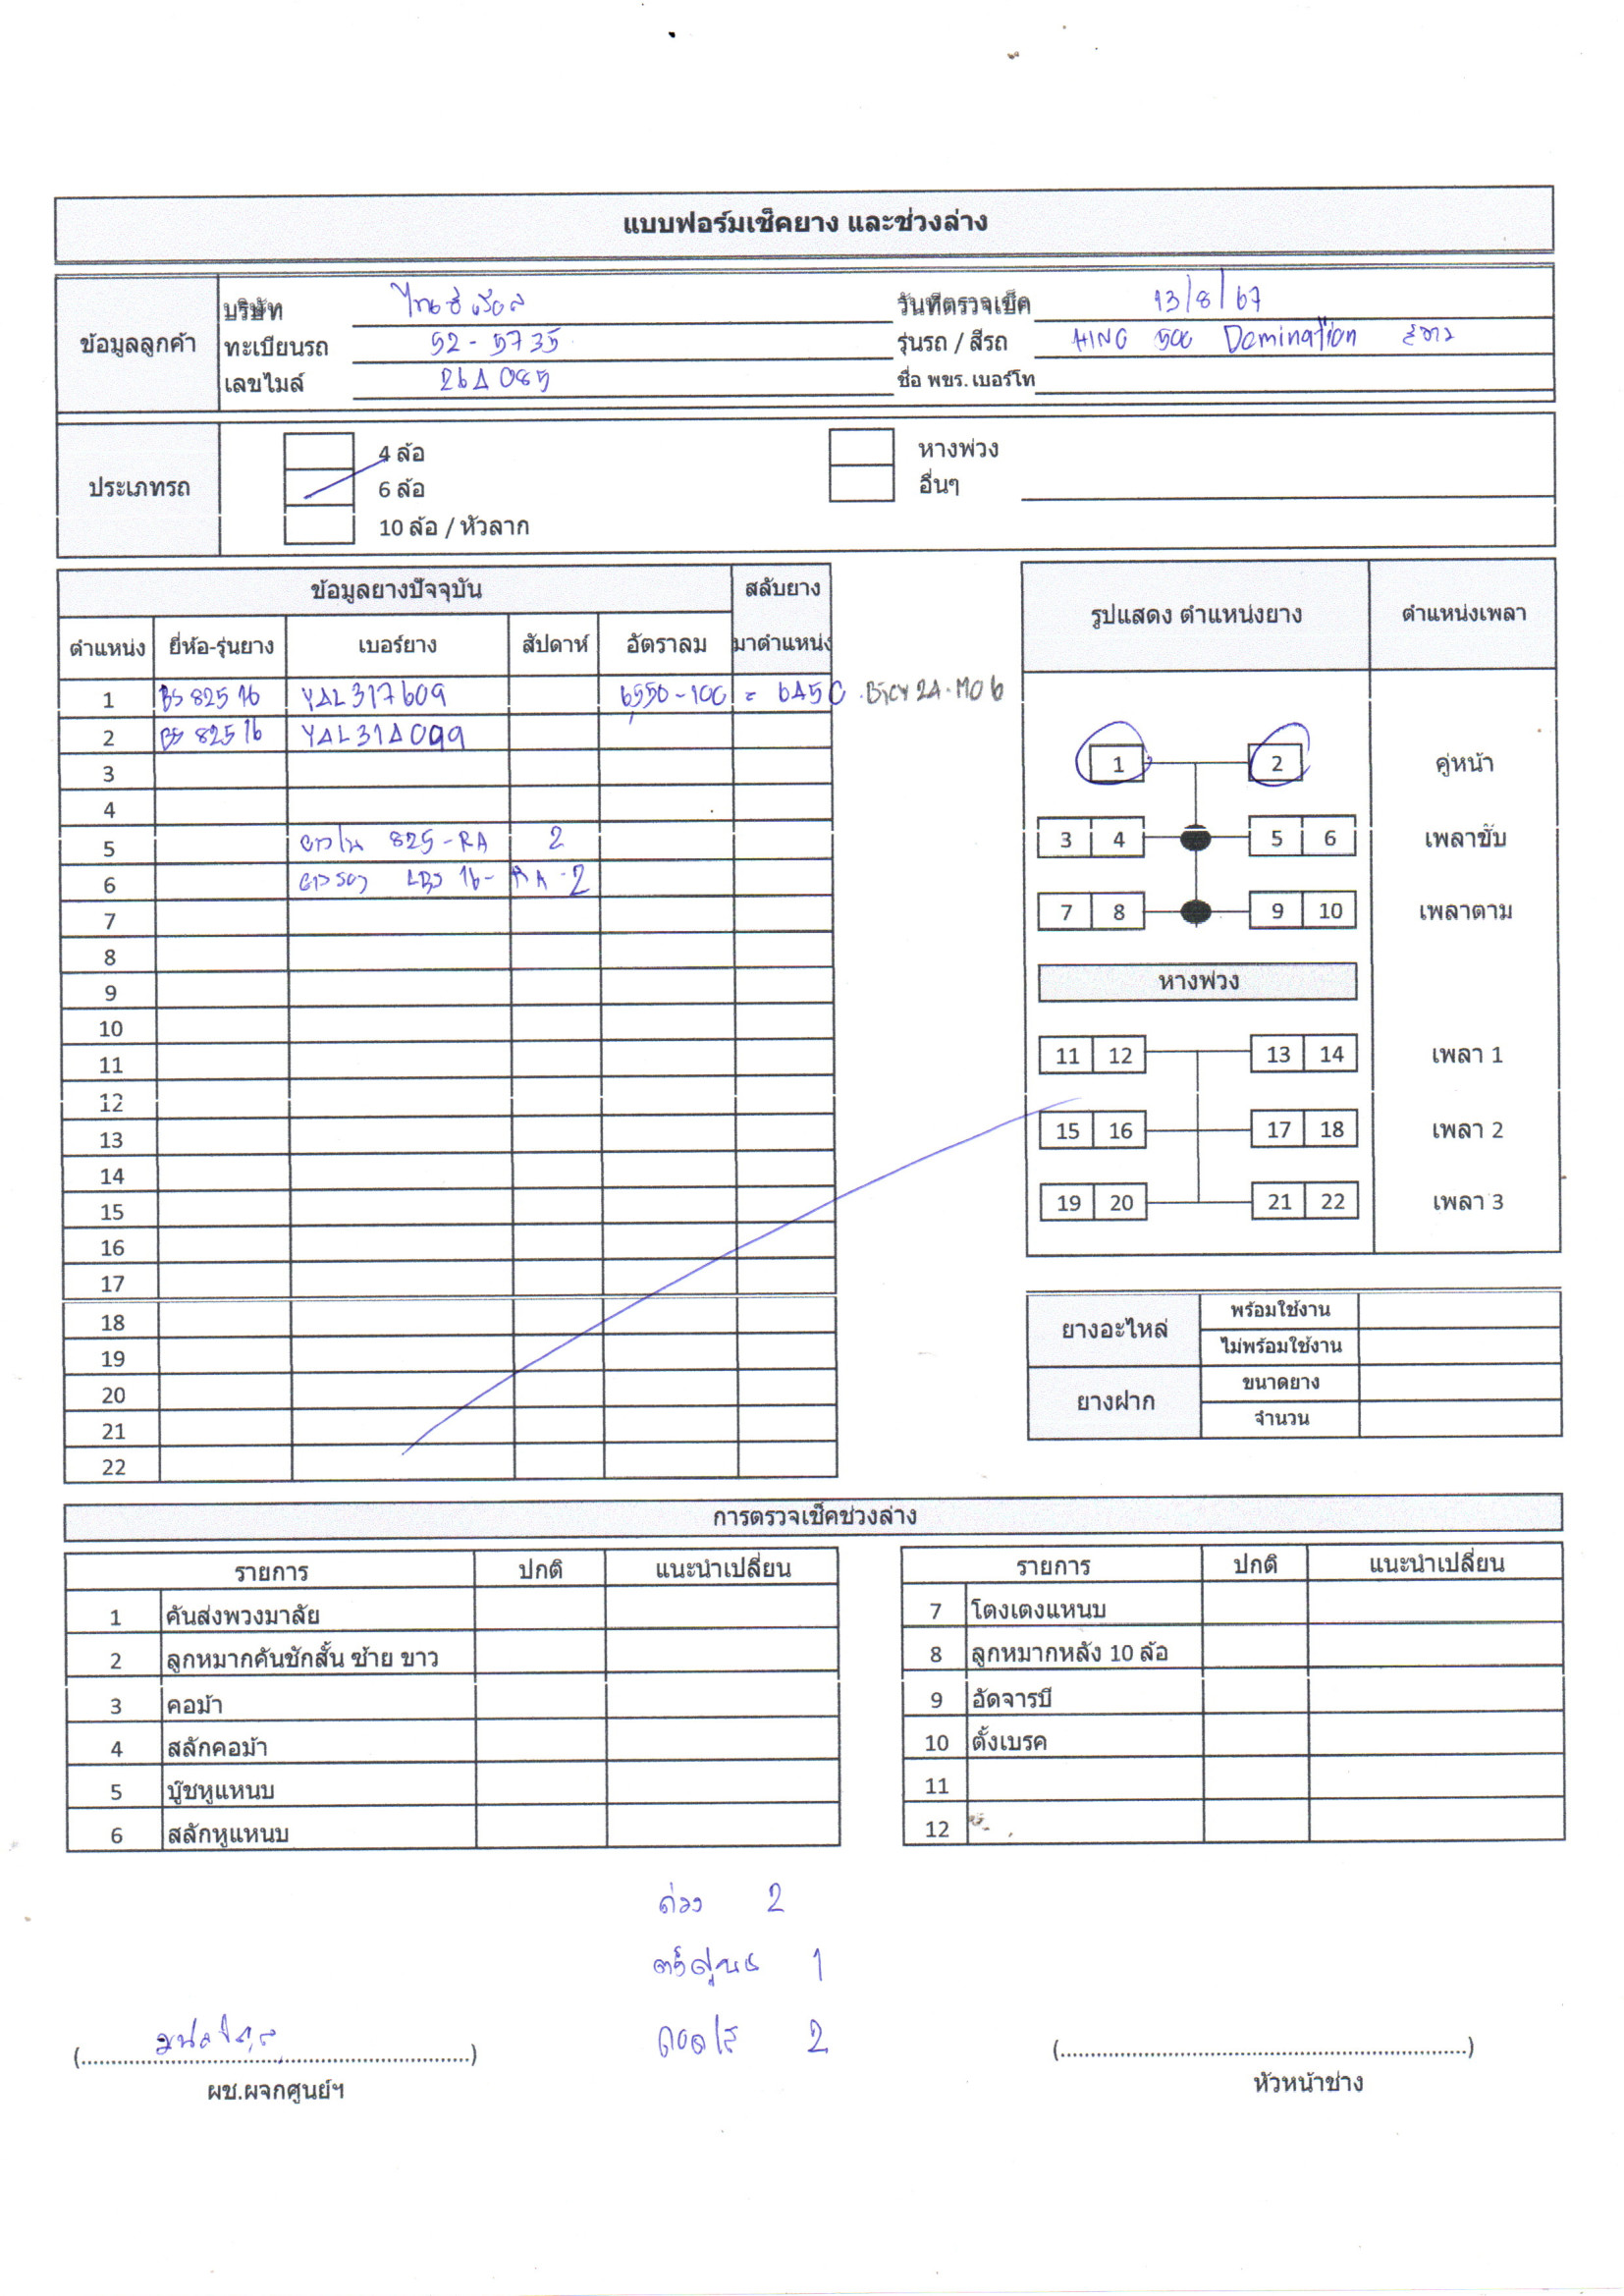 แบบฟอร์มเช็คยาง และช่วงล่าง
ข้อมูลลูกค้า
บริษัท ไทยซีเรียล วันที่ตรวจเช็ค 13/8/67
ทะเบียนรถ 52-5735 รุ่นรถ / สีรถ HINO 500 Domination สีขาว
เลขไมล์ 264085 ชื่อ พขร. เบอร์โท
ประเภทรถ
4 ล้อ หางพ่วง
6 ล้อ อื่นๆ
10 ล้อ / หัวลาก
ข้อมูลยางปัจจุบัน สลับยาง
ตำแหน่ง ยี่ห้อ-รุ่นยาง เบอร์ยาง สัปดาห์ อัตราลม มาตำแหน่ง
1 BS 825 16 YAL317609 6550-100 = 6450
2 BS 825 16 YAL314099
3
4
5 ยางใน 825-RA 2
6 ยางรอง 16-RA-2
7
8
9
10
11
12
13
14
15
16
17
18
19
20
21
22
รูปแสดง ตำแหน่งยาง ตำแหน่งเพลา
1 2 คู่หน้า
3 4 5 6 เพลาขับ
7 8 9 10 เพลาตาม
หางพ่วง
11 12 13 14 เพลา 1
15 16 17 18 เพลา 2
19 20 21 22 เพลา 3
ยางอะไหล่ พร้อมใช้งาน
ไม่พร้อมใช้งาน
ยางฝาก ขนาดยาง
จำนวน
การตรวจเช็คช่วงล่าง
รายการ ปกติ แนะนำเปลี่ยน
1 คันส่งพวงมาลัย
2 ลูกหมากคันชักสั้น ซ้าย ขาว
3 คอม้า
4 สลักคอม้า
5 บู๊ชหูแหนบ
6 สลักหูแหนบ
รายการ ปกติ แนะนำเปลี่ยน
7 โตงเตงแหนบ
8 ลูกหมากหลัง 10 ล้อ
9 อัดจารบี
10 ตั้งเบรค
11
12
ถ่วง 2
ตั้งศูนย์ 1
ถอดใส่ 2
(........................................)
ผช.ผจกศูนย์ฯ
(........................................)
หัวหน้าช่าง